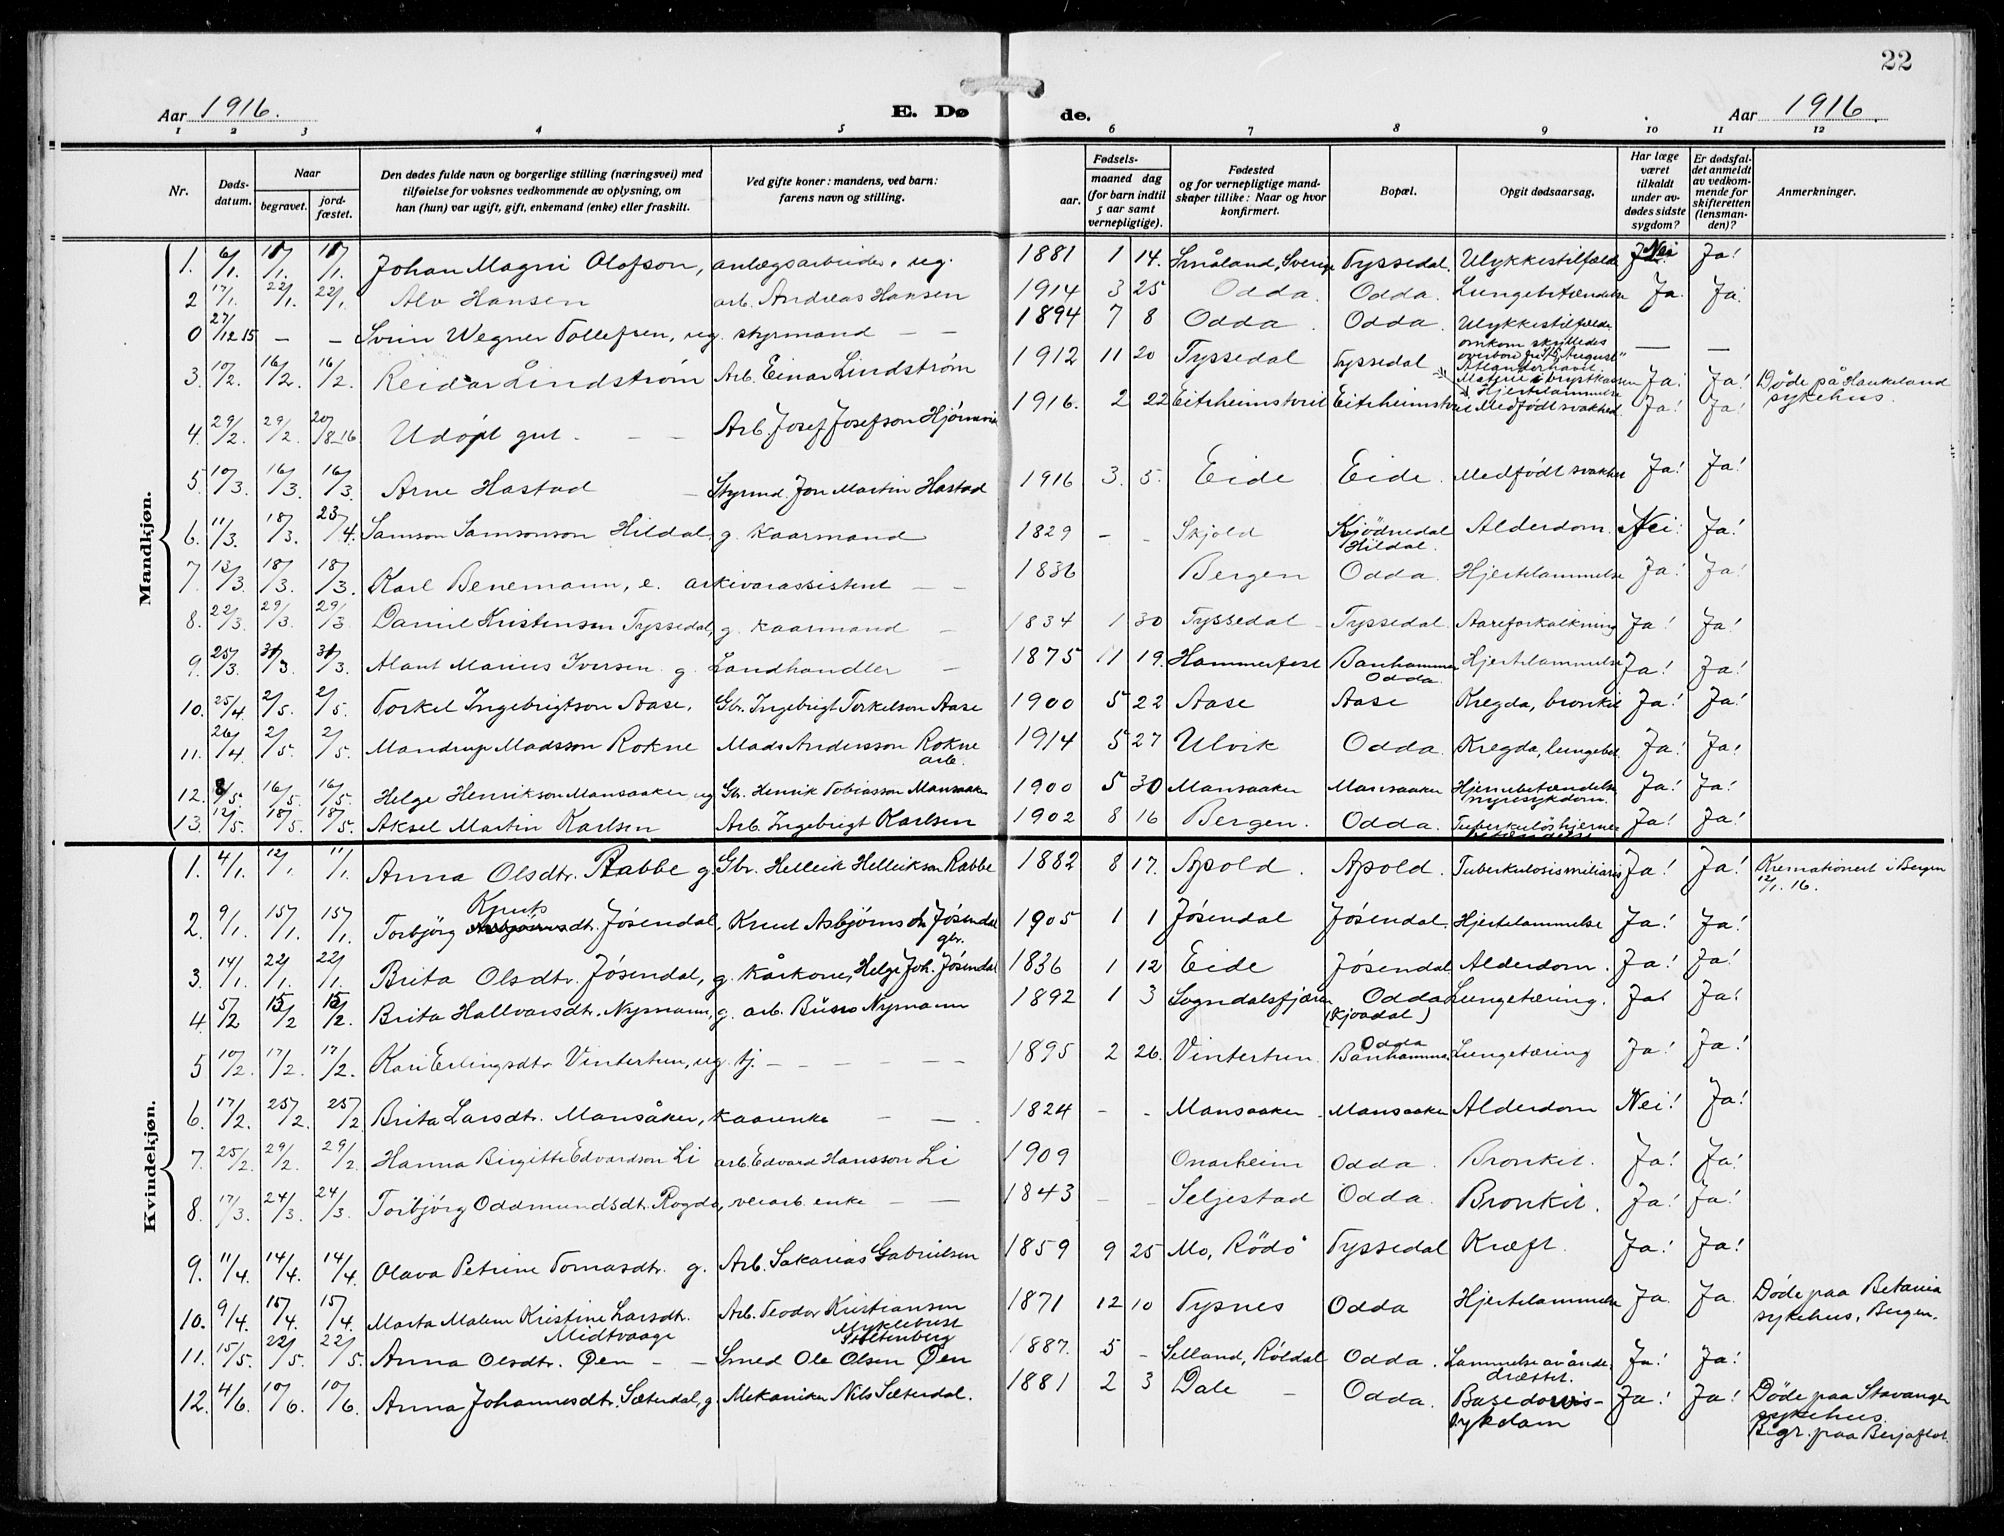 22
Aar 1916. E. Dø de. Aar 1916.
1 2 3 4 5 6 7 8 9 10 11 12
Nr. Døds-datum. Naar begravet. jord-fæstet. Den dødes fulde navn og borgerlige stilling (næringsvei) med tilføielse for voksnes vedkommende av oplysning, om han (hun) var ugift, gift, enkemand (enke) eller fraskilt. Ved gifte koner: mandens, ved barn: farens navn og stilling. Fødsels- aar. maaned dag (for barn indtil 5 aar samt vernepligtige). Fødested og for vernepligtige mand-skaper tillike: Naar og hvor konfirmert. Bopæl. Opgit dødsaarsag. Har læge været tilkaldt under av-dødes sidste sygdom? Er dødsfal-det anmeldt av vedkom-mende for skifteretten (lensman-den)? Anmerkninger.
Mandkjøn.
1. 6/1. 18/1. 18/1. Johan Magni Olofson, anlægsarbeider, ug. 1881 1 14. Småland, Sverige Tyssedal. Ulykkestilfælde Nei Ja!
2 17/1. 22/1. 22/1. Alv Hansen arb. Andreas Hansen 1914 3 25 Odda. Odda. Lungebetændelse Ja. Ja.
0 27/12 15 — — Svein Wegner Tollefsen, ug. styrmand — — 1894 7 8 Odda. Odda. Ulykkestilfælde omkom skibledes overbord fra S/S "August" Atlanterhavet — —
3. 10/2. 16/2. 16/2. Reidar Lindstrøm Arb. Einar Lindstrøm 1912 11 20 Tyssedal Tyssedal Hjertelammelse Ja! Ja! Døde på Haukeland sykehus.
4. 29/2. 29/2. 20/8-16 Udøpt gut. — — Arb. Josef Josefson Hjörnevik 1916. 2 22 Eitrheimstveit Eitrheimstveit Medfødt svakhed Ja! Ja!
5. 10/3. 16/3. 16/3. Arne Hastad — Styrmd. Jon Martin Hastad 1916 3. 5. Eide Eide. Medfødt svakhet Ja! Ja!
6. 11/3. 18/3. 23/4. Samson Samsonson Hildal, g. kaarmand 1829 - - Skjold Hildal. Alderdom. Nei! Ja!
7. 13/3. 18/3. 18/3. Karl Benemann, e. arkivarassistent — — 1836 Bergen Odda. Hjertelammelse Ja! Ja!
8. 22/3. 29/3. 29/3. Daniel Kristensen Tyssedal, g. kaarmand — 1834 1 30 Tyssedal Tyssedal. Aareforkalkning Ja! Ja!
9. 25/3. 31/3. 31/3. Marius Iversen g. Landhandler — 1875 11 19. Hammerfest Banhammer Odda. Hjertelammelse Ja! Ja!
10. 25/4. 2/5. 2/5. Torkel Ingebrigtson Aase. Gbr. Ingebrigt Torkelson Aase 1900 5 22 Aase Aase Kregda, bronkit Ja! Ja!
11. 26/4. 2/5. 2/5. Mandrup Madsson Rokne Mads Andersson Rokne arb. 1914 5 27 Ulvik Odda. Kregda, lungebet. Ja! Ja!
12. 8/5. 16/5. 16/5. Helge Henrikson Mansaaker, ug Gbr. Henrik Tobiasson Mansaaker 1900 5 30 Mansaaker Mansaaker Hjernebetændelse nyresykdom. Ja! Ja!
13. 12/5. 18/5. 18/5. Aksel Martin Karlsen Arb. Ingebrigt Karlsen 1902 8 16 Bergen. Odda. Tuberkuløs hjernebetændelse Ja! Ja!
Kvindekjøn.
1. 4/1. 12/1. 11/1. Anna Olsdtr. Rabbe g. Gbr. Helleik Helleikson Rabbe 1882 8 17. Apold. Apold. Tuberkulosis miliaris Ja! Ja! Kremationert i Bergen 12/1. 16.
2. 9/1. 15/1. 15/1. Torbjörg Knutsdtr. Jösendal, Knut Asbjörnson Jösendal gbr. 1905 1 1 Jösendal Jösendal. Hjertelammelse Ja! Ja!
3. 14/1. 22/1. 22/1. Brita Olsdtr. Jösendal, g. kårkone, Helge Joh. Jösendal 1836 1 12 Eide Jösendal Alderdom. Ja! Ja!
4. 5/2 15/2 15/2. Brita Hallvarsdtr. Nymann, g. arb. Nymann 1892 1 3 Sogndalsfjæren Odda (Kjoadal) Lungetæring. Ja! Ja!
5 10/2. 17/2. 17/2. Kari Erlingsdtr Vintertun, ug. tj. — — — 1895 2 26. Vintertun. Odda Banhammer. Lungetæring Ja! Ja!
6. 17/2. 25/2. 25/2 Brita Larsdtr. Mansåker, kaarenke — — 1824 - - Mansaaker Mansaaker Alderdom Nei! Ja!
7. 25/2. 29/2. 29/2. Hanna Birgitte Edvardson Li arb. Edvard Hansson Li 1909 Onarheim Odda. Bronkit. Ja! Ja!
8. 17/3. 24/3. 24/3. Torbjörg Oddmundsdtr. Rogde, verarb. enke — — 1843 - - Seljestad Odda. Bronkit. Ja! Ja!
9. 11/4. 14/4. 14/4. Olava Petrine Tomasdtr. g. Arb. Sakarias Gabrielsen 1859 9 25 Mo, Rödö Tyssedal Kræft. Ja! Ja!
10. 9/4. 15/4. 15/4. Marta Malene Kristine Larsdtr. Midtvaage Arb. Teodor Kristiansen Myklebust Stoltenberg 1871 12 10 Tysnes Odda Hjertelammelse Ja. Ja. Døde paa Betania sykehus, Bergen.
11. 15/5. 22/5. 22/5. Anna Olsdtr. Øen — — Smed Ole Olsen Øen 1887. 5 - Selland, Röldal Odda. Lammelse av ånde drættet. Ja! Ja!
12. 4/6. 10/6. 10/6. Anna Johannesdtr. Sæterdal, g. Mekaniker Nils Sæterdal. 1881 2 3 Dale — Odda. Basedowis-sykdam Ja! Ja! Døde paa Stavanger sykehus. Begr. paa